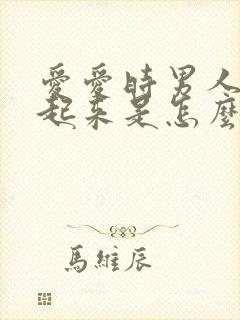 愛愛時男人
起來是怎麼
馬維辰